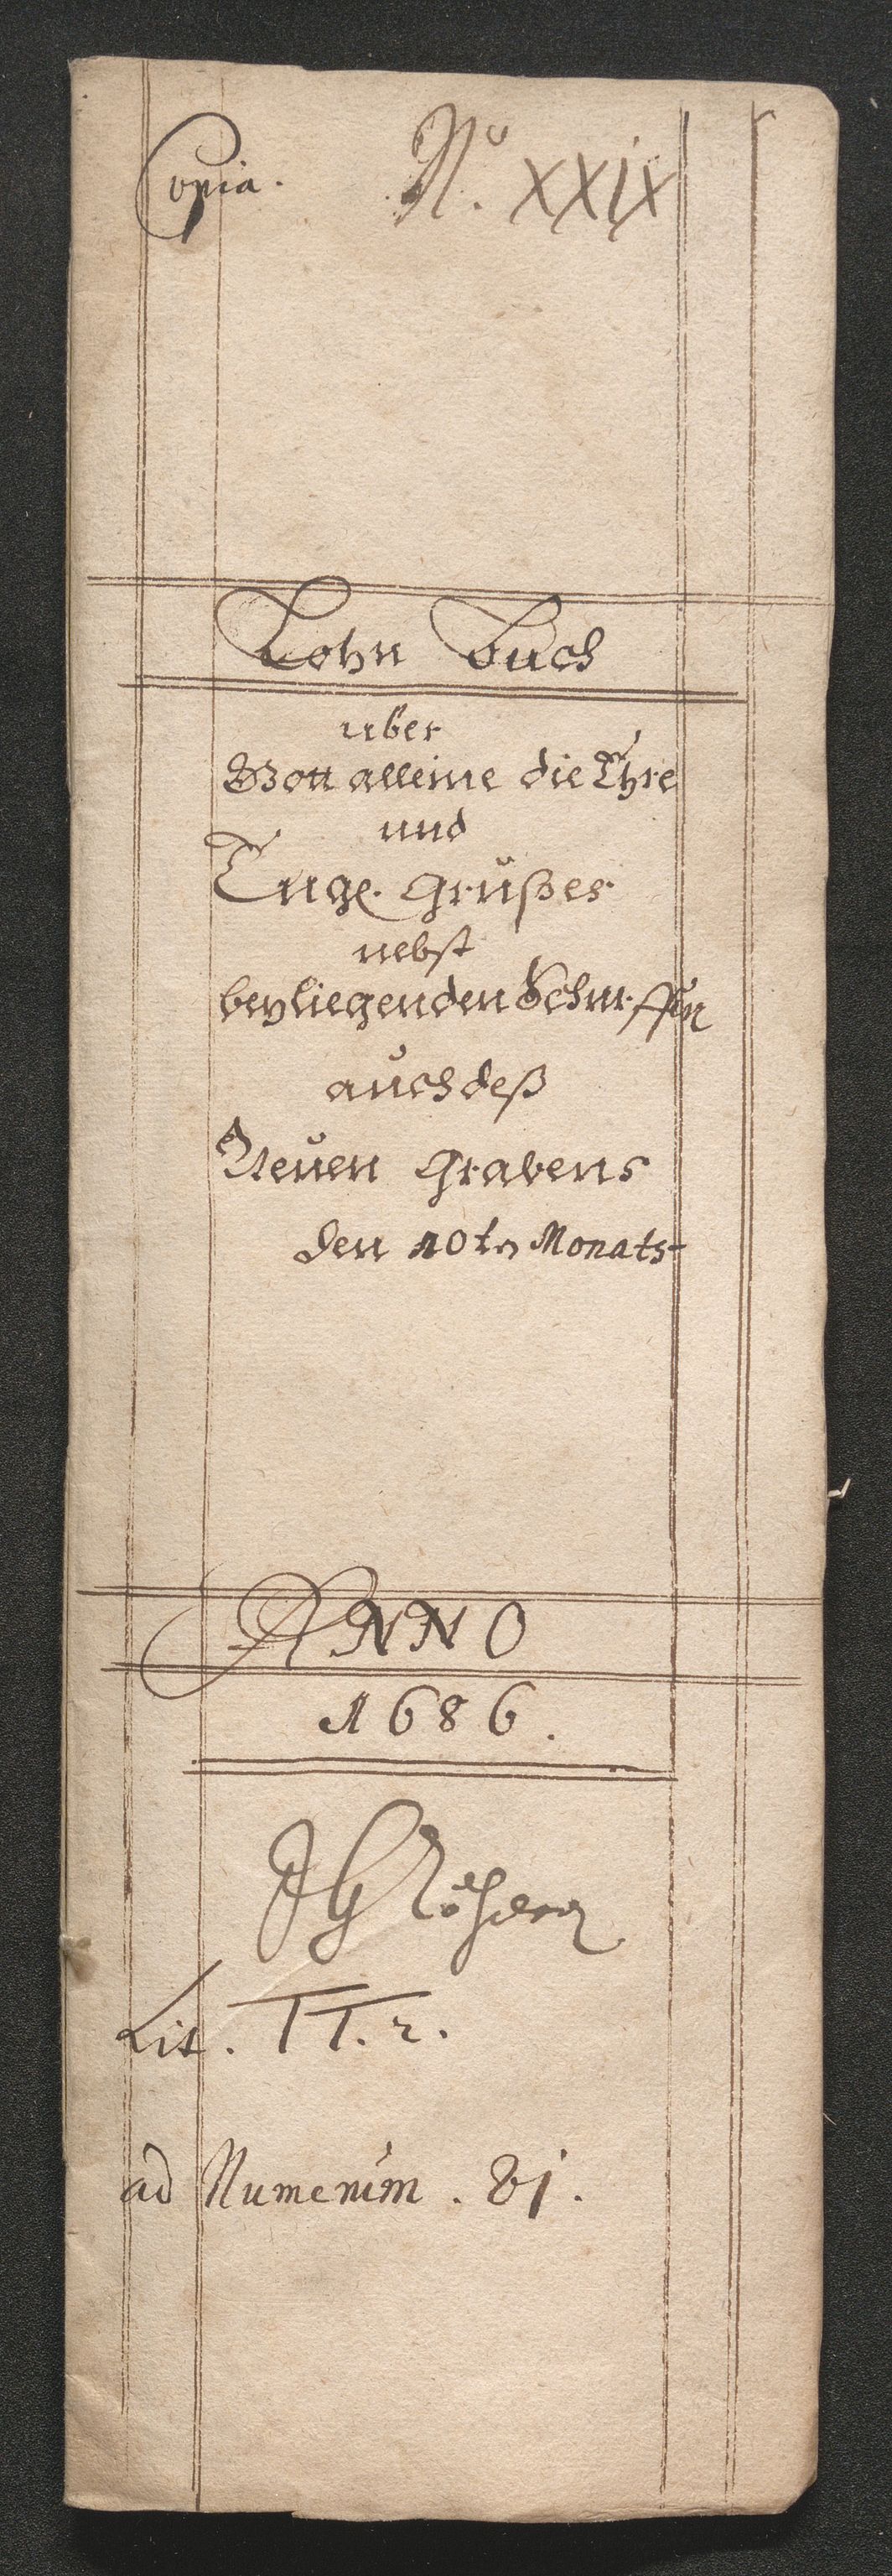 Copia. No. XXIX
Lohn Buch
uber
Gott alleine die Ehre
und
Engl. Grußes
nebst
beyliegenden Schurffen
auch deß
Neuen Grabens
den 10tn Monats
ANNO
1686.
JG
Lit. TT. 2.
ad Numerum. 81.